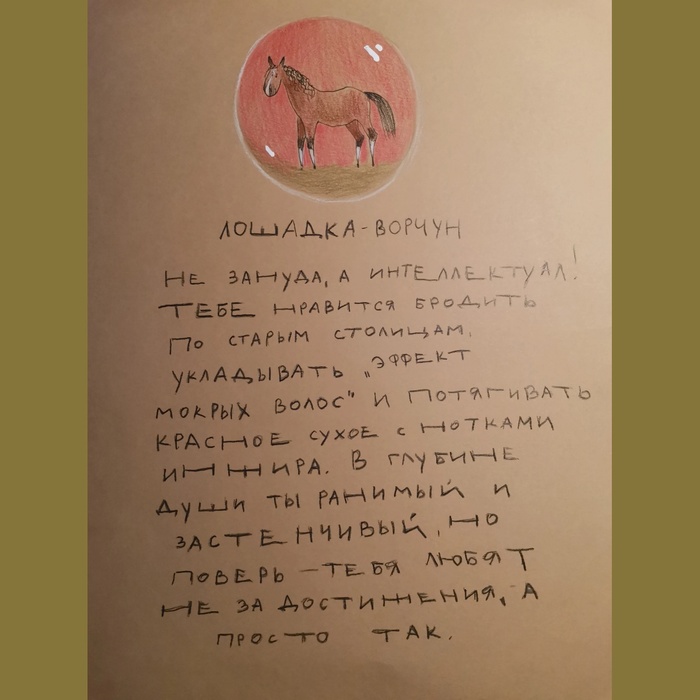 ЛОШАДКА-ВОРЧУН
НЕ ЗАНУДА, А ИНТЕЛЛЕКТУАЛ!
ТЕБЕ НРАВИТСЯ БРОДИТЬ
ПО СТАРЫМ СТОЛИЦАМ,
УКЛАДЫВАТЬ „ЭФФЕКТ
МОКРЫХ ВОЛОС" И ПОТЯГИВАТЬ
КРАСНОЕ СУХОЕ С НОТКАМИ
ИНЖИРА. В ГЛУБИНЕ
ДУШИ ТЫ РАНИМЫЙ И
ЗАСТЕНЧИВЫЙ, НО
ПОВЕРЬ – ТЕБЯ ЛЮБЯТ
НЕ ЗА ДОСТИЖЕНИЯ, А
ПРОСТО ТАК.